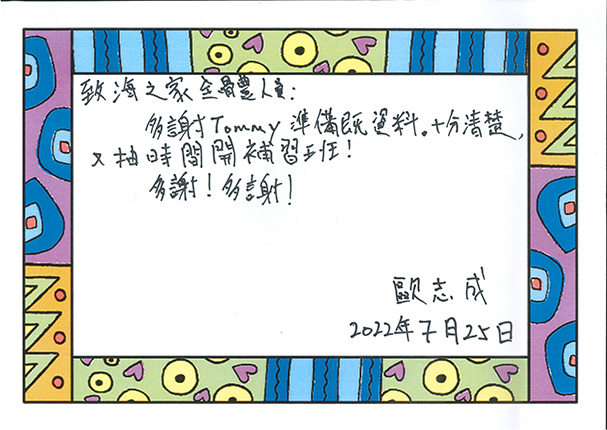 致海之家全體人員：
多謝Tommy準備既資料。十分清楚，
又抽時間開補習班！
多謝！多謝！
歐志成
2022年7月25日